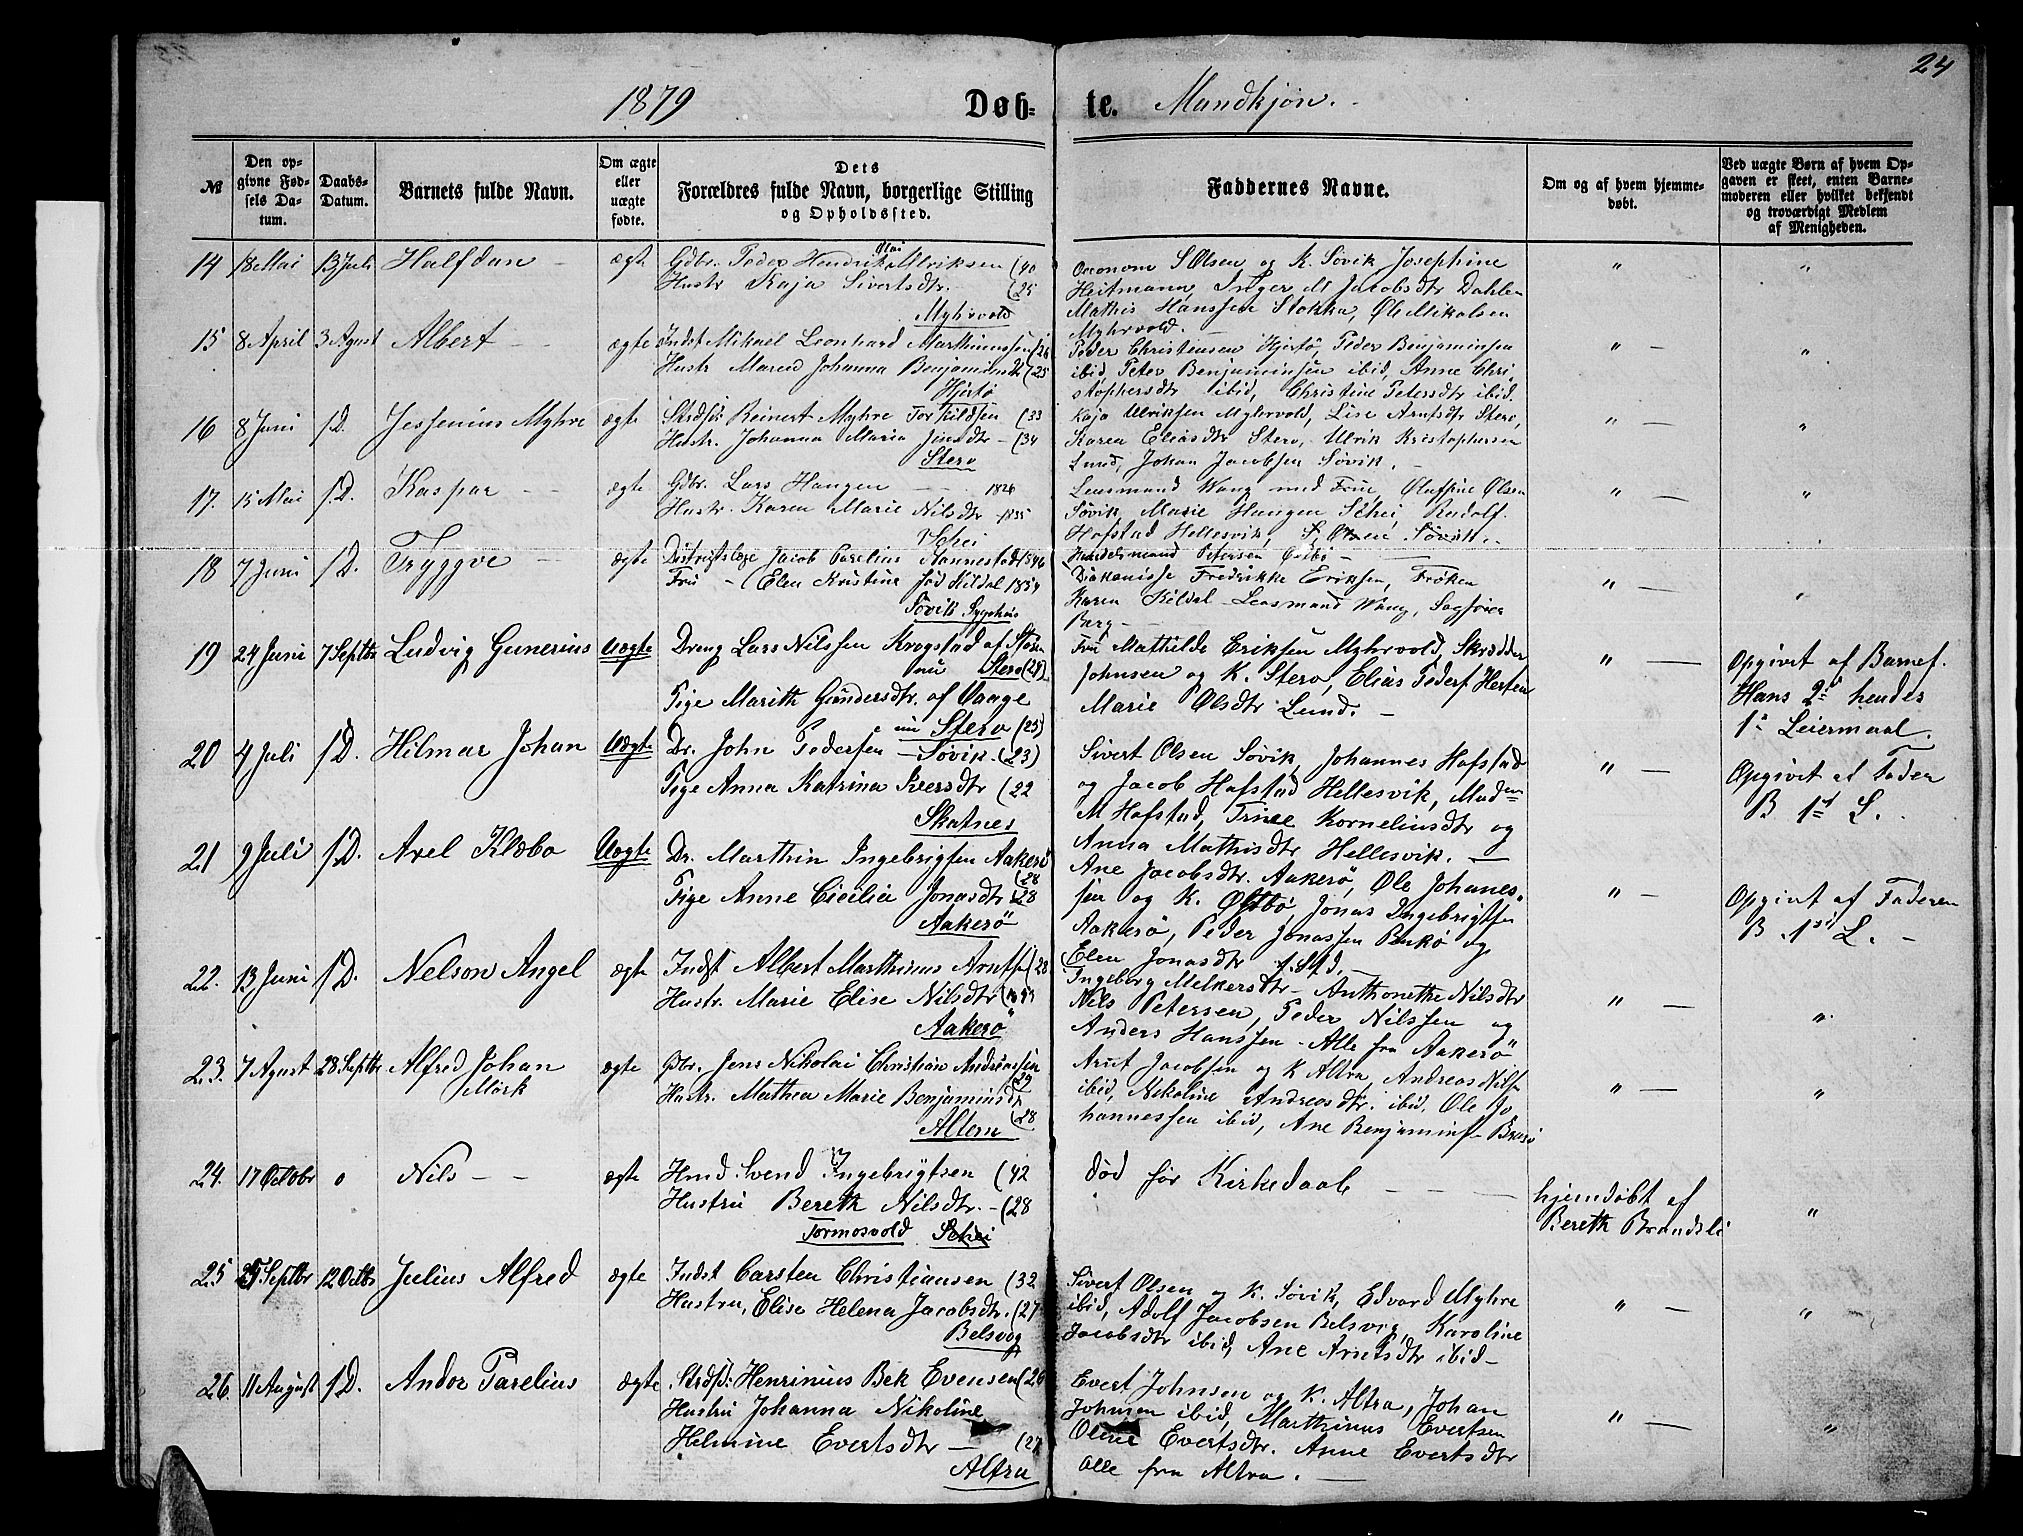 24
1879 Døb- te. Mandkjøn.
№
Den op-
givne Fød-
sels Da-
tum.
Daabs-
Datum.
Barnets fulde Navn.
Om ægte
eller
uægte
fødte.
Dets
Forældres fulde Navn, borgerlige Stilling
og Opholdssted.
Faddernes Navne.
Om og af hvem hjemme-
døbt.
Ved uægte Børn af hvem Op-
gaven er skeet, enten Barne-
moderen eller hvilket bekjendt
og troværdigt Medlem
af Menigheden.
14 18 Mai 13 Juli Halfdan – ægte Gdbr. Peder Hendrik Ulriksen (40
Hustr Kaja Sivertsdtr. (25
Myhrvold
Oeconom S Olsen og K. Søvik Josephine
Heitmann, Inger M Jacobsdtr Dahlen
Mathis Hanssen Stokka, Ole Mikalsen
Myhrvold. –
" "
15 8 April 3 Agust Albert – – ægte Indst Mikael Leonhard Marthinussen (26
Hustr Maren Johanna Benjaminsdt (25
Hjertø
Peder Christensen Hjertø, Peder Benjaminsen
ibid Peter Benjaminsen ibid, Anne Chri
stophersdtr ibid, Christine Petersdtr ibid.
" – "
16 8 Juni f.D. Jessenius Myhre ægte Strdsr. Reinert Myhre Torkildsen (33
Hustr. Johanna Maria Jonsdtr – (34
Stero
Kaja Ulriksen Myhrvold, Lise Arntsdtr Stero,
Karen Eliasdtr Stero, Ulrik Kristophersen
Lund, Johan Jacobsen Søvik. –
" – "
17. 15 Mai f.D. Kaspar – – ægte Gdbr. Lars Haugen – 1826
Hustr. Karen Marie Nilsdtr 1835
Schei
Lensmand Wang med Frue, Olufine Olsen
Søvik, Marie Haugen Schei, Rudolf
Hofstad Hellesvik, S. Olsen Søvik. –
" – "
18 7 Juni f.D. Tryggve – ægte Distrigtslæge Jacob Parelius Nannestad 1846
Fru – (Elen Kristine fød Kildal 1854
Søvik Sygehus
Handelsmand Petersen –
Diakonisse Fredrikke Eriksen, Frøken
Karen Kildal – Lensmand Wang, Sagfører
Berg –
" – "
19 24 Juni 7 Septbr Ludvig Gunerius Uægte Dreng Lars Nilssen Krogstad af Støren
nu Stero (28)
Pige Marith Gundersdtr. af Vaage
nu Stero (25)
Fru Mathilde Eriksen Myhrvold, Skrædder
Johnsen og K. Stero, Elias Peders Herten
Marie Olsdtr Lund. –
" – Opgivet af Barnef.
Hans 2det hendes
1ste Leiermaal.
20 4 Juli f.D. Hilmar Johan Uægte Dr. John Pedersen – Søvik. (23)
Pige Anna Katrina Iversdtr (22
Skatnes
Sivert Olsen Søvik, Johannes Hofstad
og Jacob Hofstad Hellesvik, Madm
M Hofstad, Trine Korneliusdtr og
Anna Mathisdtr Hellesvik. –
" – Opgivet af Fader
B 1st L.
21 9 Juli f.D. Axel Klæbo Uægte Dr. Marthin Ingebrigtsen Aakerø
(28
Pige Anne Cicilia Jonasdtr 28
Aakerø
Ane Jacobsdtr. Aakerø, Ole Johanes
sen og K. Østbø, Jonas Ingebrigtsen
Aakerø, Peder Jonassen og
Elen Jonasdtr
" – Opgivet af Faderen
B. 1st L. –
22. 13 Juni f.D. Nelson Angel ægte Indst Albert Marthinus Arntsen (28
Hustr. Marie Elise Nilsdtr
Aakerø
Ingeborg Melkersdtr – Anthonette Nilsdtr
Nils Petersen, Peder Nilssen og
Anders Hanssen – Alle fra Aakerø
" – "
23. 7 Agust 28 Septbr Alfred Johan
Mørk ægte Gbr. Jens Nikolai Christian Andreassen
(29
Hustr. Mathea Marie Benjaminsdtr
(28
Altern
Arnt Jacobsen og K Altra, Andreas Nilsen
ibid, Nikoline Andreasdtr. ibid. Ole Jo
hannessen ibid, Ane Benjamins
" – "
24. 17 Octobr o Nils – – ægte Hmd. Svend Ingebrigtsen (42
Hustru Bereth Nilsdtr. – (28
Tormosvold Schei
død før Kirkedaab – – –
hjemdøbt af
Bereth Brandsli
"
25 25 Septbr 12 Octbr Julius Alfred ægte Indst Carsten Christiansen (32
Hustru, Elise Helena Jacobsdtr. (27
Belsvog
Sivert Olsen og K. Søvik, Edvard Myhre
ibid, Adolf Jacobsen Belsvig, Karoline
Jacobsdtr ibid, Ane Arntsdtr ibid –
" – "
26. 11 August f.D. Andor Parelius ægte Strdsr. Henrinius Bek Evensen (26
Hustru Johanna Nikoline
Helmine Evertsdtr – (27
Altra
Evert Johnsen og K. Altra, Johan
Johnsen ibid, Marthinus Evertsen
Oline Evertsdtr. Anne Evertsdtr
Alle fra Altra. –
" – "